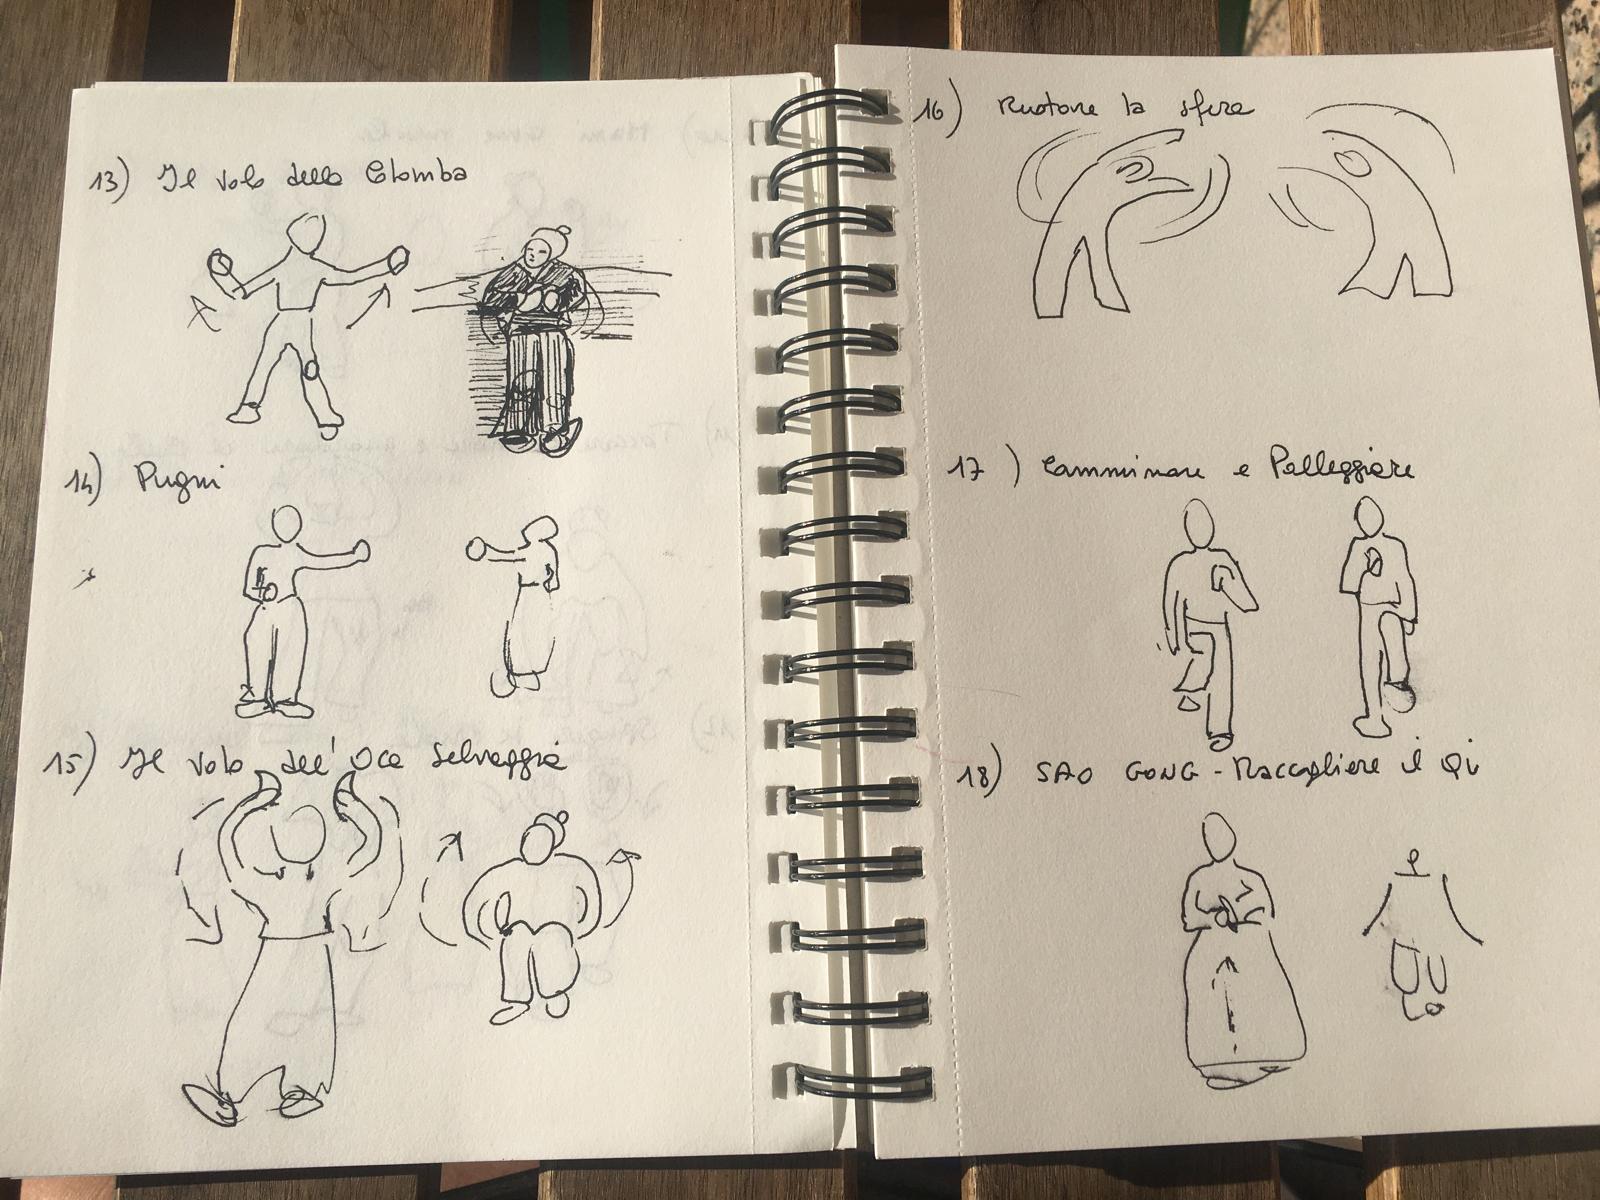 13) Il volo della Colomba
14) Pugni
15) Il volo dell'Oca Selvaggia
16) Ruotare la sfera
17) Camminare e Palleggiare
18) SAO GONG - Raccogliere il Qi